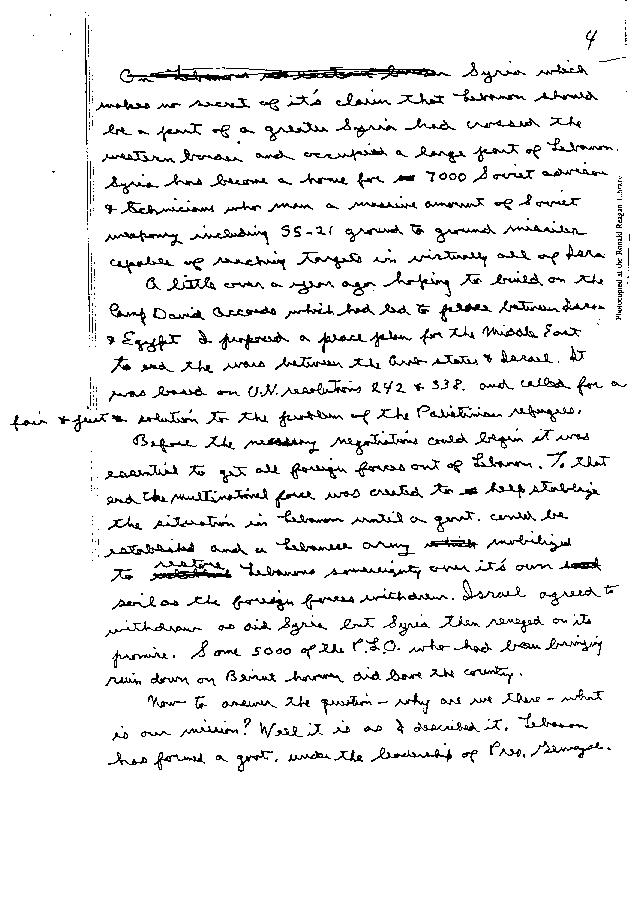 4
On Lebanons eastern border Syria which
makes no secret of it's claim that Lebanon should
be a part of a greater Syria had crossed the
western border and occupied a large part of Lebanon.
Syria has become a home for 7000 Soviet advisors
& technicians who man a massive amount of Soviet
weaponry including SS-21 ground to ground missiles
capable of reaching targets in virtually all of Isra
A little over a year ago hoping to build on the
Camp David Accords which had led to peace between Israe
& Egyppt I proposed a peace plan for the Middle East
to end the wars between the Arab states & Israel. It
was based on U.N. resolutions 242 & 338. and called for a
fair & just solution to the problem of the Palestinian refugees.
Before the necessary negotiations could begin it was
essential to get all foreign forces out of Lebanon. To that
end the multinational force was created to help stabilize
the situation in Lebanon until a govt. could be
established and a Lebanese army which mobilized
to restore Lebanons sovereignty over it's own
soil as the foreign forces withdrew. Israel agreed to
withdraw as did Syria but Syria then reneged on its
promise. Some 5000 of the P.L.O. who had been bringing
ruin down on Beirut however did leave the country.
Now to answer the question - why are we there - what
is our mission? Well it is as I described it. Lebanon
has formed a govt. under the leadership of Pres. Gemayal.
Photocopied at the Ronald Reagan Library